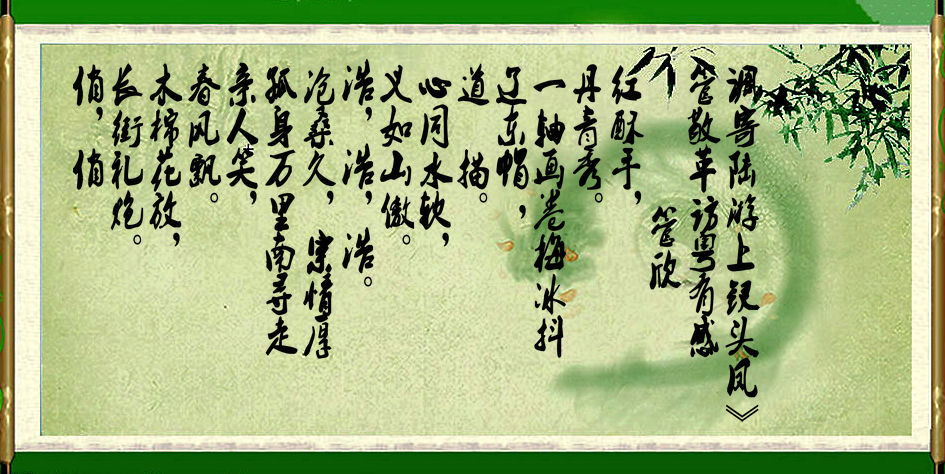 调寄陆游上钗头凤》
管敬革访粤有感
管欣
红酥手，
丹青秀。
一轴画卷梅冰抖
辽东帽，
道 描。
心同水软，
义如山傲。
浩，浩，浩。
沧桑久，宗情厚
孤身万里南寻走
亲人笑，
春风飘。
木棉花放，
长街礼炮。
俏，俏